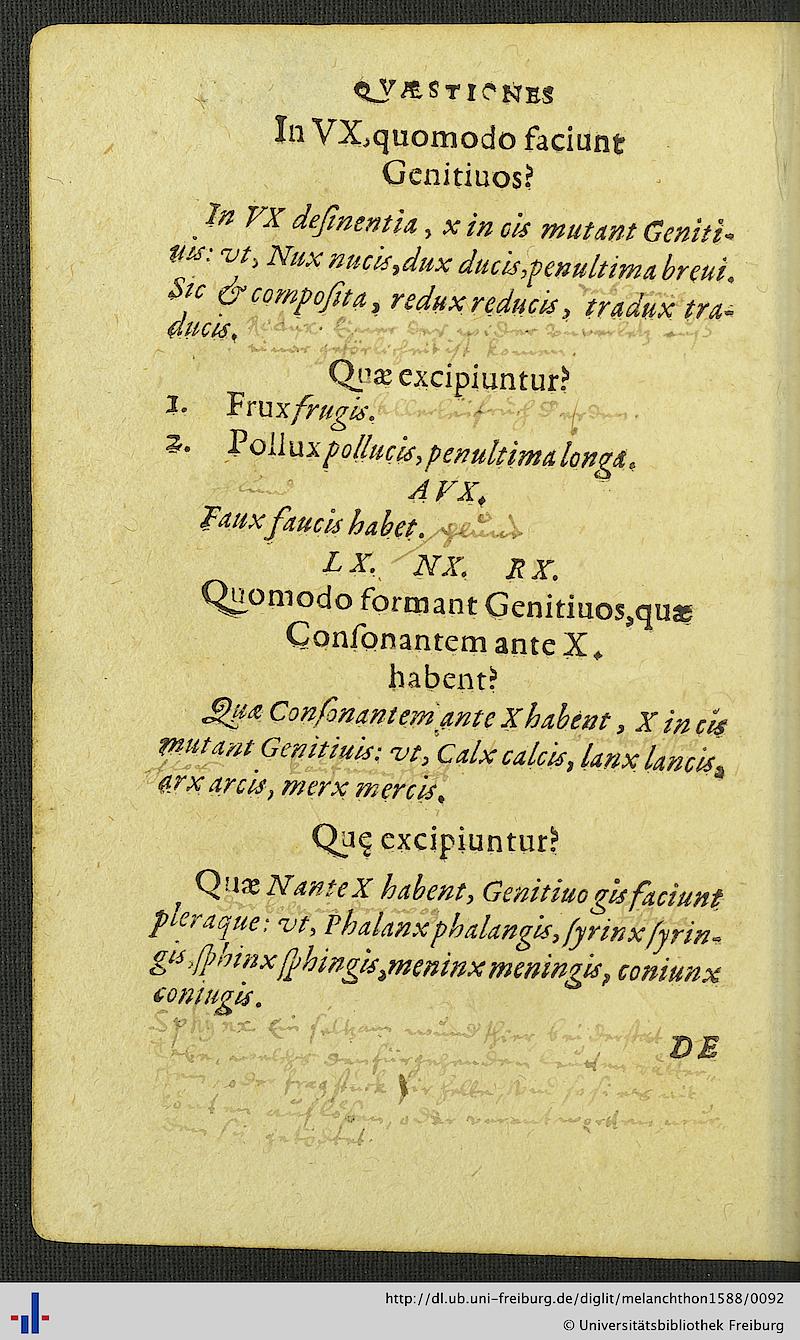 QVÆSTIONES
In VX, quomodo faciunt
Genitiuos?
In VX deſinentia, x in cis mutant Geniti-
uis: vt, Nux nucis, dux ducis, penultima breui.
Sic & compoſita, redux reducis, tradux tra-
ducis.
Einer der wider
einer geförlicheit ist komen.
Quæ excipiuntur?
1. Frux frugis.
2. Pollux pollucis, penultima longa.
AVX.
Faux faucis habet.
LX. NX. RX.
Quomodo formant Genitiuos, quæ
Conſonantem ante X.
habent?
Quæ Conſonantem ante X habent, X in cis
mutant Genitiuis: vt, Calx calcis, lanx lancis,
arx arcis, merx mercis.
Quę excipiuntur?
Quæ N ante X habent, Genitiuo gis faciunt
pleraque: vt, Phalanx phalangis, ſyrinx ſyrin-
gis, ſphinx ſphingis, meninx meningis, coniunx
coniugis.
DE
Sphynx Ein seltzam thier bei der stat
welches den fürgehenden
oder fragstuck
auflösen, oder
getödtet.
http://dl.ub.uni-freiburg.de/diglit/melanchthon1588/0092
© Universitätsbibliothek Freiburg